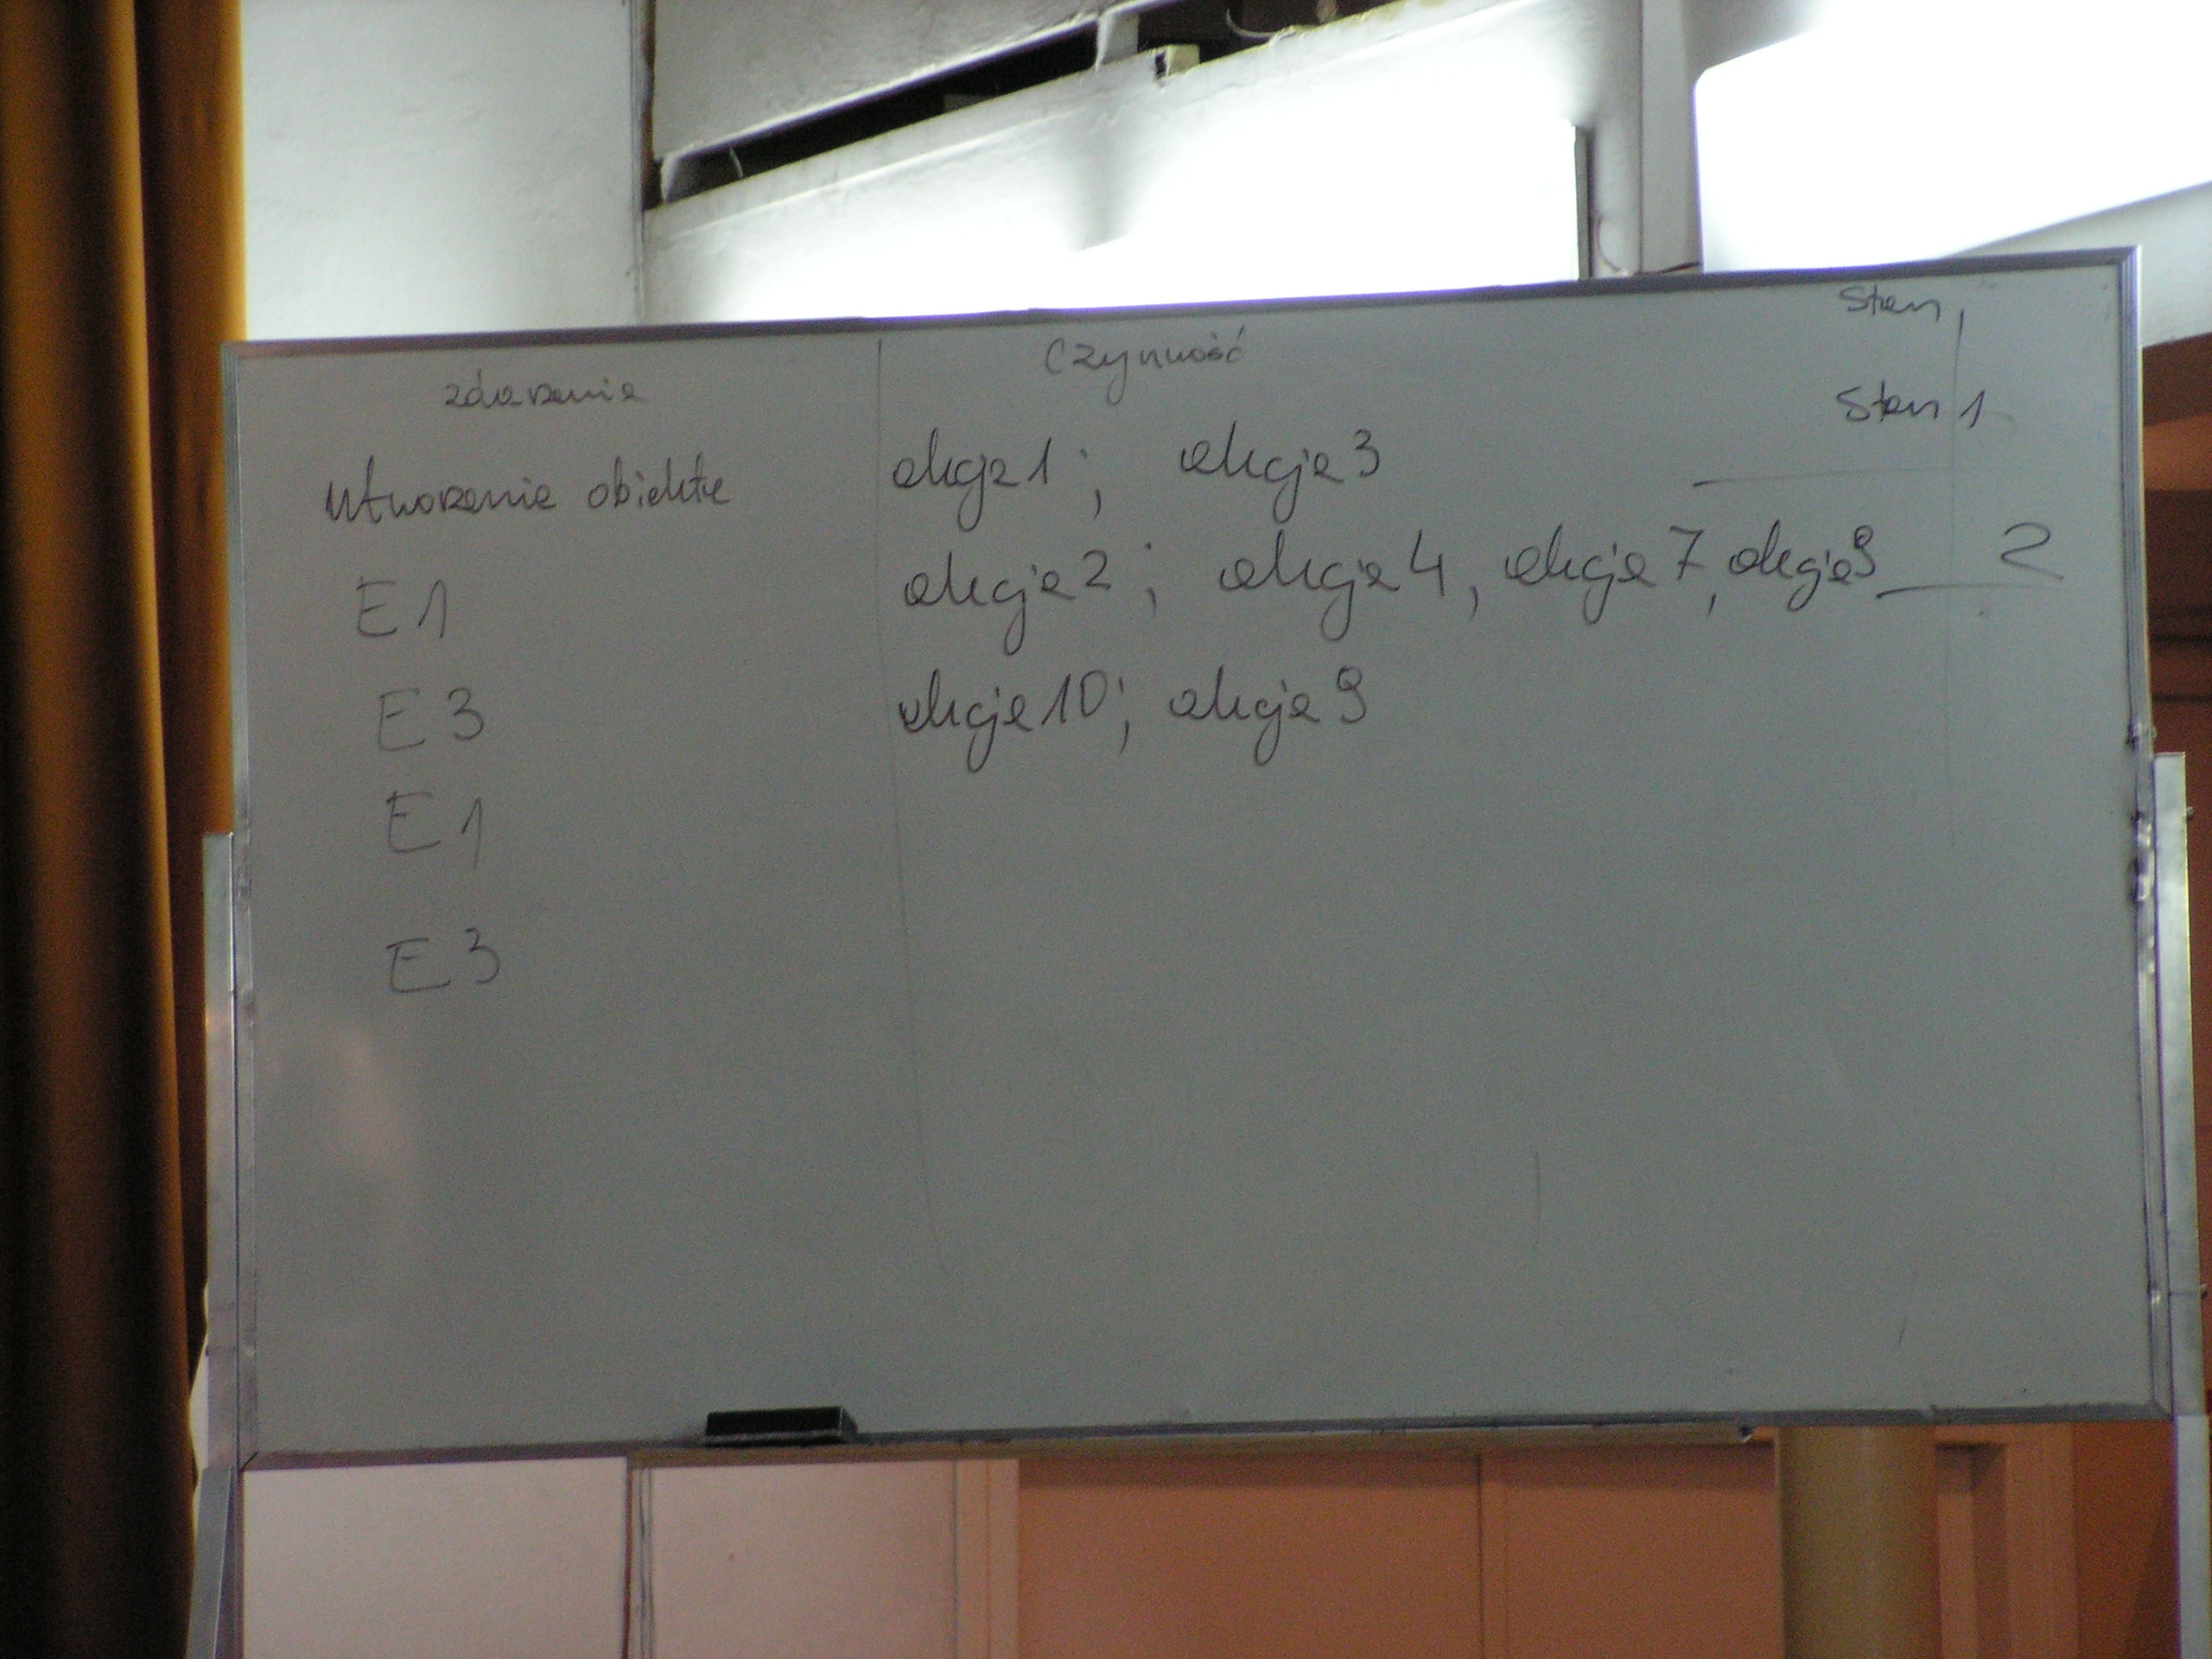 zdarzenia Czynność Stan
Stan 1
Utworzenie obiektu akcja 1; akcja 3
E1 akcja 2; akcja 4, akcja 7, akcja 9 2
E3 akcja 10; akcja 9
E1
E3